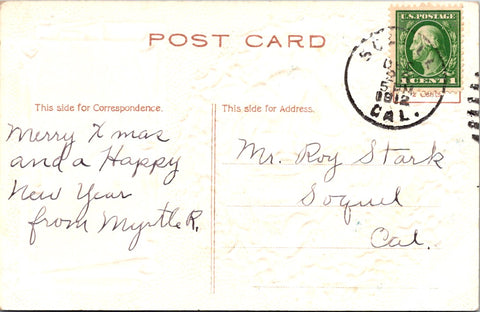 POST CARD
U.S. POSTAGE
1 CENT 1
1912
CAL.
This side for Correspondence.
This side for Address.
Merry Xmas
and a Happy
New Year
from Myrtle R.
Mr. Roy Stark
Soquel
Cal.